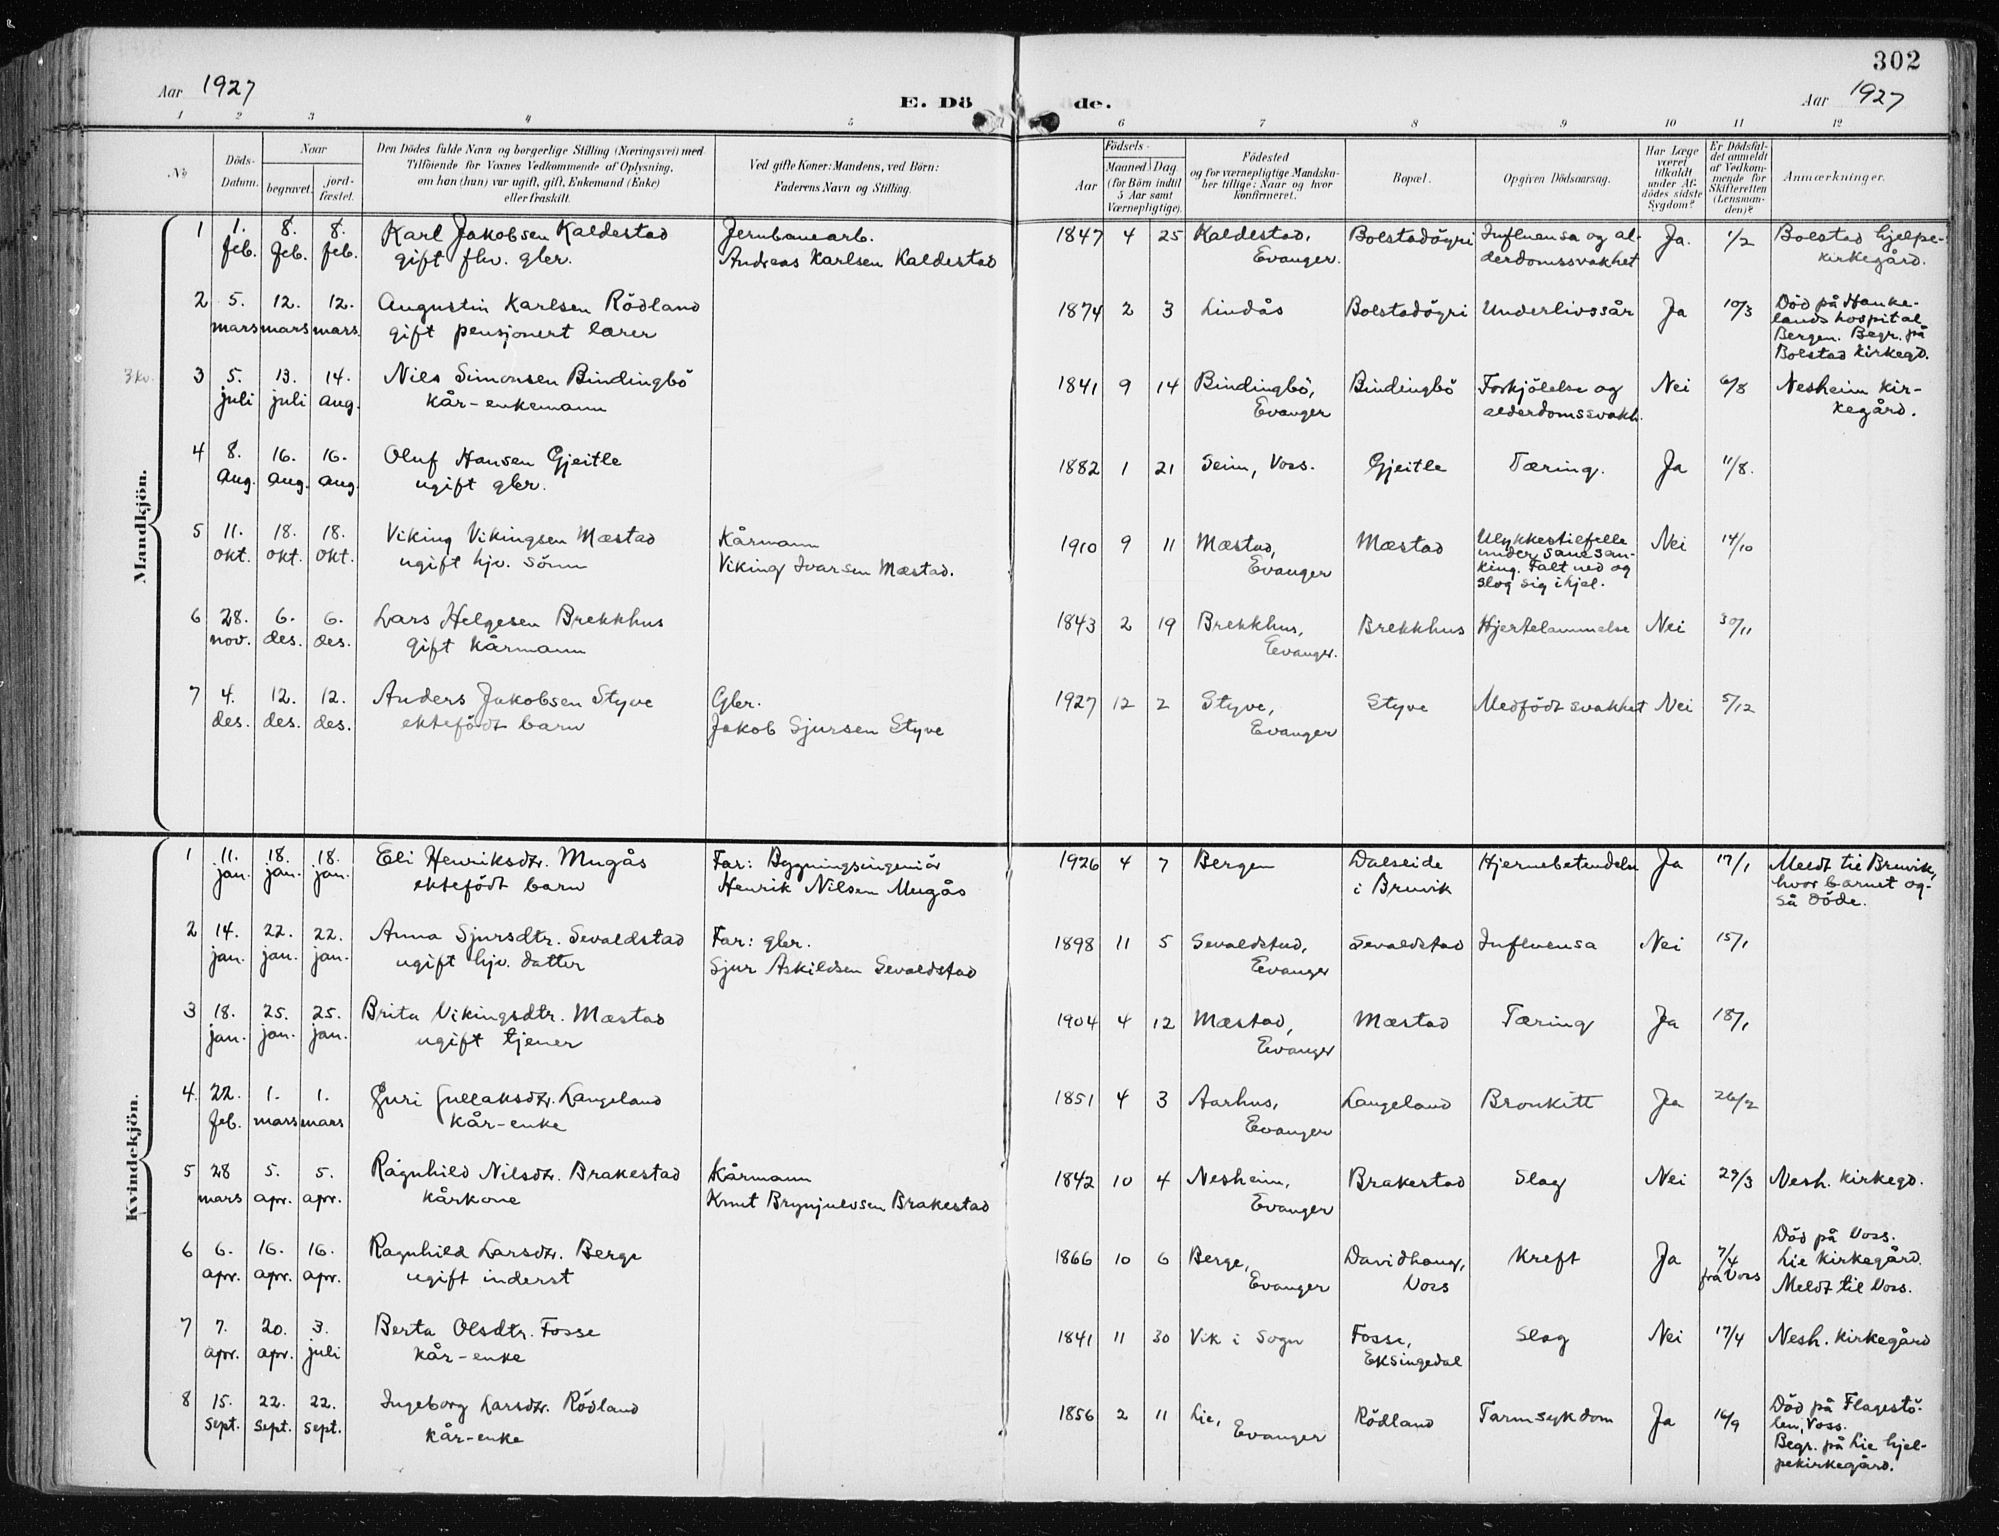 302
Aar 1927
E. Dö de.
Aar 1927
1 2 3 4 5 6 7 8 9 10 11 12
No
Döds-
Datum.
Naar
begravet.
jord-
fæstet.
Den Dödes fulde Navn og borgerlige Stilling (Næringsvei) med
Tilföiende for Voxnes Vedkommende af Oplysning,
om han (hun) var ugift, gift, Enkemand (Enke)
eller fraskilt.
Ved gifte Koner: Mandens, ved Börn:
Faderens Navn og Stilling.
Födsels-
Aar
Maaned Dag
(for Börn indtil
5 Aar samt
Værnepligtige).
Födested
og for værnepligtige Mandsku-
ber tillige: Naar og hvor
konfirmeret.
Bopæl.
Opgiven Dödsaarsag.
Har Læge
været
tilkaldt
under Af-
dödes sidste
Sygdom?
Er Dödsfal-
det anmeldt
af Vedkom-
mende for
Skifteretten
(Lensman-
den)?
Anmærkninger.
Mandkjön.
1 1. 8. 8. Karl Jakobsen Kaldestad Jernbanearb. 1847 4 25 Kaldestad, Bolstadöyri Influensa og al- Ja. 1/2 Bolstad hjelpe-
feb. feb. feb. gift fhv. gbr. Andreas Karlsen Kaldestad Evanger. derdomssvakhet kirkegård.
2 5. 12. 12. Augustin Karlsen Rödland 1874 2 3 Lindås Bolstadöyri Underlivssår Ja 10/3 Död på Hauke-
mars mars mars. gift pensjonert lærer lands hospital
Bergen. Begr. på
Bolstad kirkegd.
3kv. 3 5. 13. 14. Nils Simonsen Bindingbö 1841 9 14 Bindingbö, Bindingbö Forkjölelse og Nei 6/8 Nesheim kir-
juli juli aug. kår-enkemann Evanger alderdomssvakh. kegård.
4 8. 16. 16. Oluf Hansen Gjeitle 1882 1 21 Seim, Voss. Gjeitle Tæring. Ja 11/8.
aug. aug. aug. ugift gbr.
5 11. 18. 18. Viking Vikingsen Mæstad Kårmann 1910 9 11 Mæstad, Mæstad Ulykkestilfelle Nei 14/10
okt. okt. okt. ugift hjv. sönn Viking Ivarsen Mæstad. Evanger under sauesan-
king. Falt ned og
slog sig ihjel.
6 28. 6. 6. Lars Helgesen Brekkhus 1843 2 19 Brekkhus, Brekkhus Hjertelammelse Nei 30/11
nov. des. des. gift kårmann Evanger.
7 4. 12. 12. Anders Jakobsen Styve Gbr. 1927 12 2 Styve, Styve Medfödt svakhet Nei 5/12
des. des. des. ektefödt barn Jakob Sjursen Styve Evanger
Kvindekjön.
1 11. 18. 18. Eli Henriksdtr. Mugås Far: Bygningsingeniör 1926 4 7 Bergen Dalseide Hjernebetendelse Ja 17/1 Meldt til Bruvik,
jan. jan. jan. ektefödt barn Henrik Nilsen Mugås i Bruvik hvor barnet og-
så döde.
2 14. 22. 22. Anna Sjursdtr. Sevaldstad Far: gbr. 1898 11 5 Sevaldstad, Sevaldstad Influensa Nei 15/1
jan. jan. jan. ugift hjv. datter Sjur Askildsen Sevaldstad Evanger
3 18. 25. 25. Brita Vikingsdtr. Mæstad 1904 4 12 Mæstad, Mæstad Tæring Ja 18/1
jan. jan. jan. ugift tjener Evanger
4. 22. 1. 1. Guri Gullaksdtr. Langeland 1851 4 3 Aarhus, Langeland Bronkitt Ja 26/2
feb. mars mars kår-enke Evanger
5 28 5. 5. Ragnhild Nilsdtr. Brakestad Kårmann 1842 10 4 Nesheim, Brakestad Slag Nei 29/3 Nesh. kirkegd.
mars apr. apr. kårkone Knut Brynjulvsen Brakestad Evanger
6 6. 16. 16. Ragnhild Larsdtr. Berge 1866 10 6 Berge, Davidhaug, Kreft Ja 7/4 Död på Voss.
apr. apr. apr. ugift inderst Evanger Voss fra Voss Lie kirkegård.
Meldt til Voss.
7 7. 20. 3. Berta Olsdtr. Fosse 1841 11 30 Vik i Sogn Fosse, Slag Nei 17/4 Nesh. kirkegård
apr. apr. juli kår-enke Eksingedal
8 15. 22. 22. Ingeborg Larsdtr. Rödland 1856 2 11 Lie, Rödland Tarmsykdom Ja 16/9 Död på Flagestö-
sept. sept. sept. kår-enke Evanger len, Voss.
Begr. på Lie hjel-
pekirkegård.